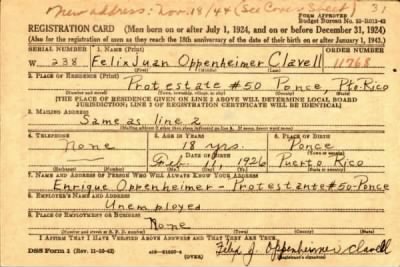 New address: Nov. 18/44 (See Cover Sheet) 31
FORM APPROVED
Budget Bureau No. 33-R013-42
REGISTRATION CARD (Men born on or after July 1, 1924, and on or before December 31, 1924)
(Also for the registration of men as they reach the 18th anniversary of the date of their birth on or after January 1, 1943.)
SERIAL NUMBER 1. NAME (Print) ORDER NUMBER
W 238 Felix Juan Oppenheimer Clavell 11768
2. PLACE OF RESIDENCE (Print)
Protestate #50 Ponce, Pto. Rico
[THE PLACE OF RESIDENCE GIVEN ON LINE 2 ABOVE WILL DETERMINE LOCAL BOARD
JURISDICTION; LINE 2 OF REGISTRATION CERTIFICATE WILL BE IDENTICAL]
3. MAILING ADDRESS
Same as line 2
4. TELEPHONE 5. AGE IN YEARS 6. PLACE OF BIRTH
None 18 yrs. Ponce
DATE OF BIRTH
Feb. 11, 1926 Puerto Rico
7. NAME AND ADDRESS OF PERSON WHO WILL ALWAYS KNOW YOUR ADDRESS
Enrique Oppenheimer - Protestante #50 - Ponce
8. EMPLOYER'S NAME AND ADDRESS
Unemployed
9. PLACE OF EMPLOYMENT OR BUSINESS
None
I AFFIRM THAT I HAVE VERIFIED ABOVE ANSWERS AND THAT THEY ARE TRUE.
DSS Form 1 (Rev. 11-16-42) (OVER) Felix J. Oppenheimer Clavell